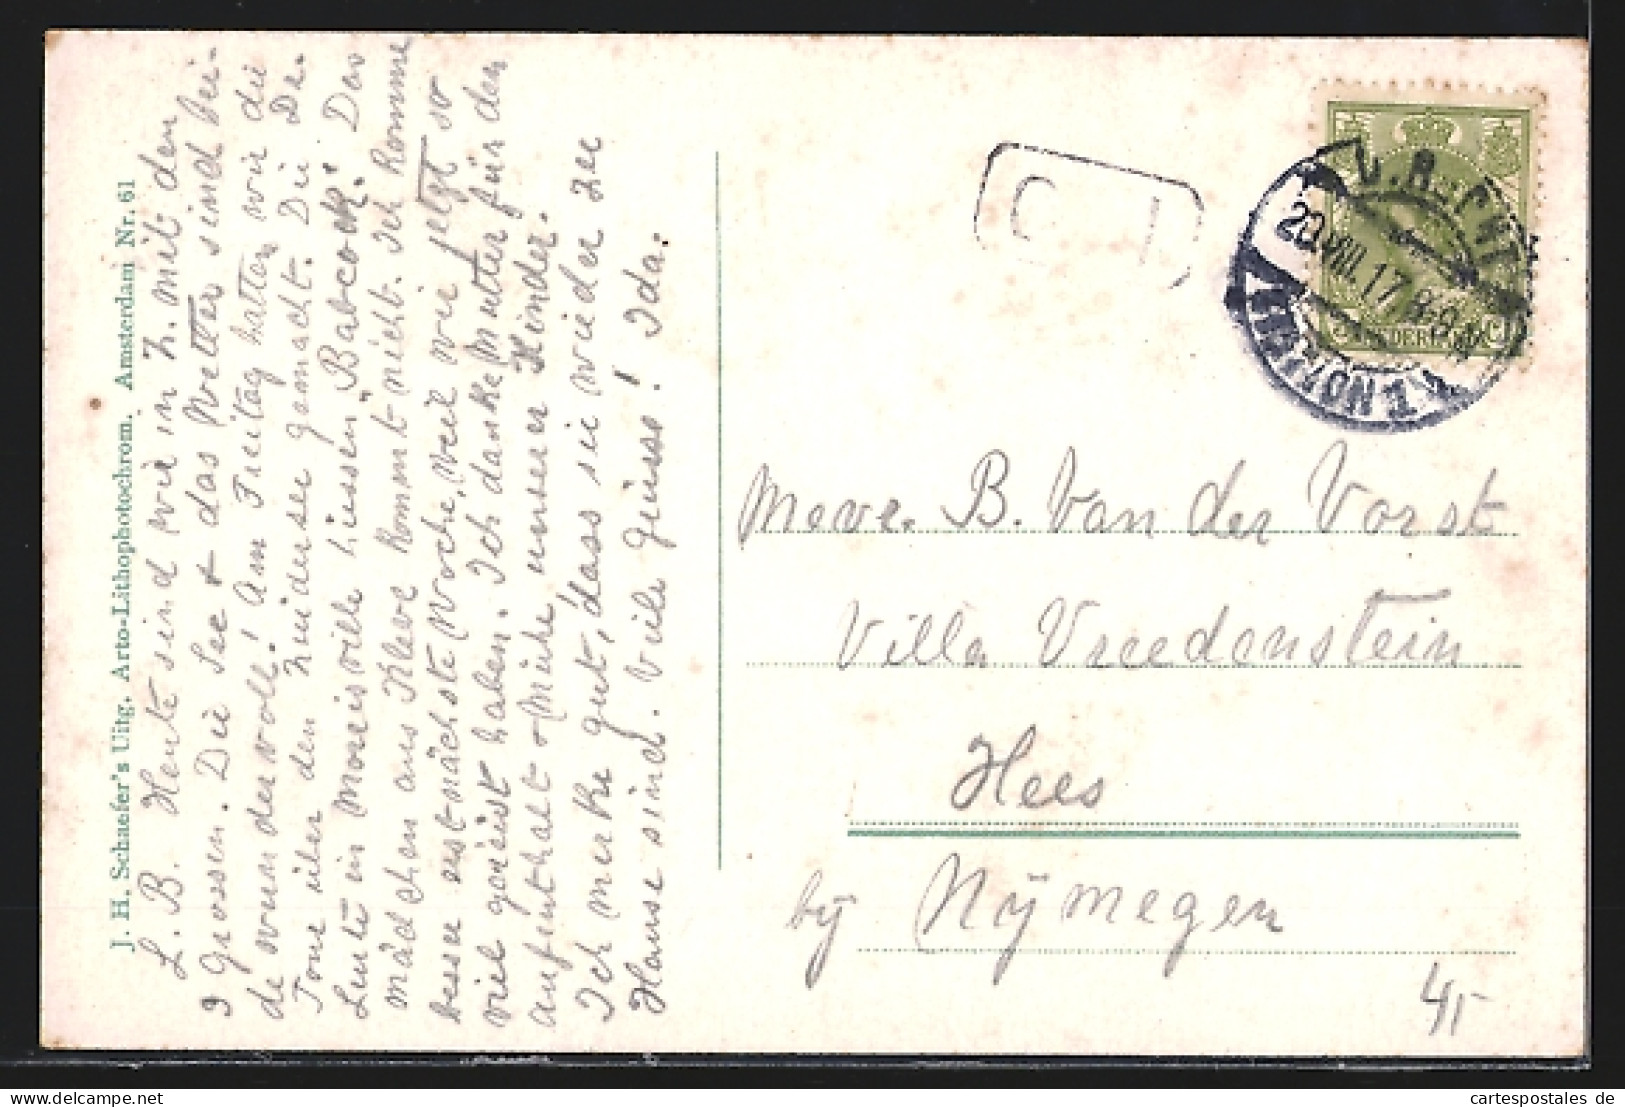 J. H. Schaefer's Uitg. Arto-Lithophotochrom. Amsterdam Nr. 61
L. B. Heute sind wir in Z. mit den
3 Grossen. Die See + das Wetter sind bei-
de wundervoll! Am Freitag hatten wir die
Tour über den Zuidersee gemacht. Die De.
Leute in liessen "Babcock". Das
mädchen aus Kleve kommt nicht. Ich komme
besser erst nächste Woche, weil wir jetzt so
viel gereist haben. Ich danke Mutter für den
aufenthalt + Mühe unserer Kinder.
Ich merke gut, dass sie wieder zu
Hause sind. Viele Grüsse! Ida.
20 VIII. 17
NEDERLAND
Mevr. B. Van der Vorst
Villa Vreedenstein
Hees
bij Nijmegen
4,-
cartespostales de